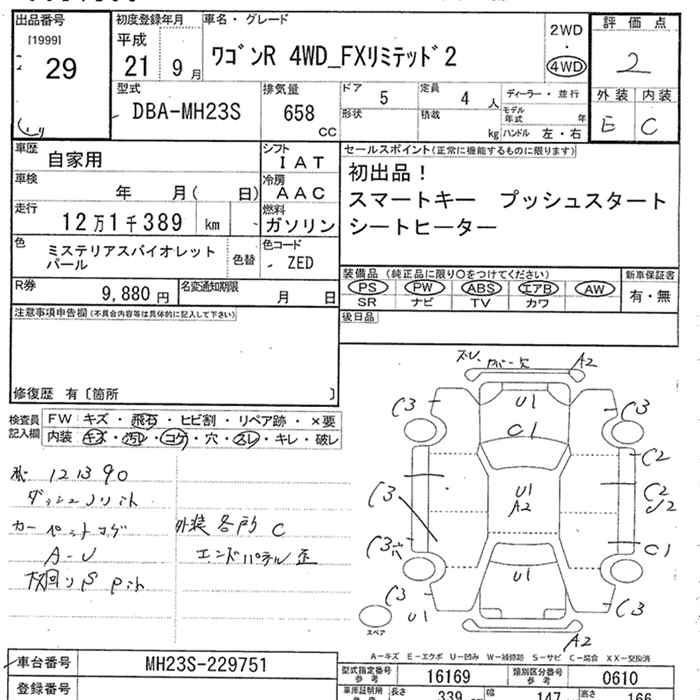 出品番号
[1999]
29
初度登録年月
平成
21 9月
車名・グレード
ワゴンR 4WD_FXリミテッド2
2WD
・
4WD
評価点
2
外装 内装
E C
型式
DBA-MH23S
排気量
658
CC
ドア 5
定員 4 人
ディーラー・並行
形状
積載 kg
モデル年式 年
ハンドル 左・右
車歴 自家用
シフト IAT
車検 年 月( 日)
冷房 AAC
走行 12万1千389 km
燃料 ガソリン
色 ミステリアスバイオレット
パール
色替
色コード
ZED
R券 9,880円
名変通知期限 月 日
セールスポイント(正常に機能するものに限ります)
初出品!
スマートキー プッシュスタート
シートヒーター
装備品(純正品に限り○をつけてください)
PS PW ABS エアB AW
SR ナビ TV カワ
新車保証書
有・無
後日品
注意事項申告欄(不具合内容等は具体的に記入して下さい)
修復歴 有〔箇所 〕
検査員
記入欄
FW キズ・飛石・ヒビ割・リペア跡・×要
内装 キズ・汚レ・コゲ・穴・スレ・キレ・破レ
121390
カーペットコゲ
A-U
外装各所 C
エンドパネル歪
カバー欠
A2
C3
U1
C3
C1
C2
C3
U1
A2
C2
U2
C3穴
C1
U1
C3
U1
C3
A2
スペア
A-キズ E-エクボ U-凹み W-補修跡 S-サビ C-腐食 XX-交換済
車台番号 MH23S-229751
登録番号
型式指定番号
参考
16169
類別区分番号
参考
0610
車庫証明用
長さ 339 幅 147 高さ 166